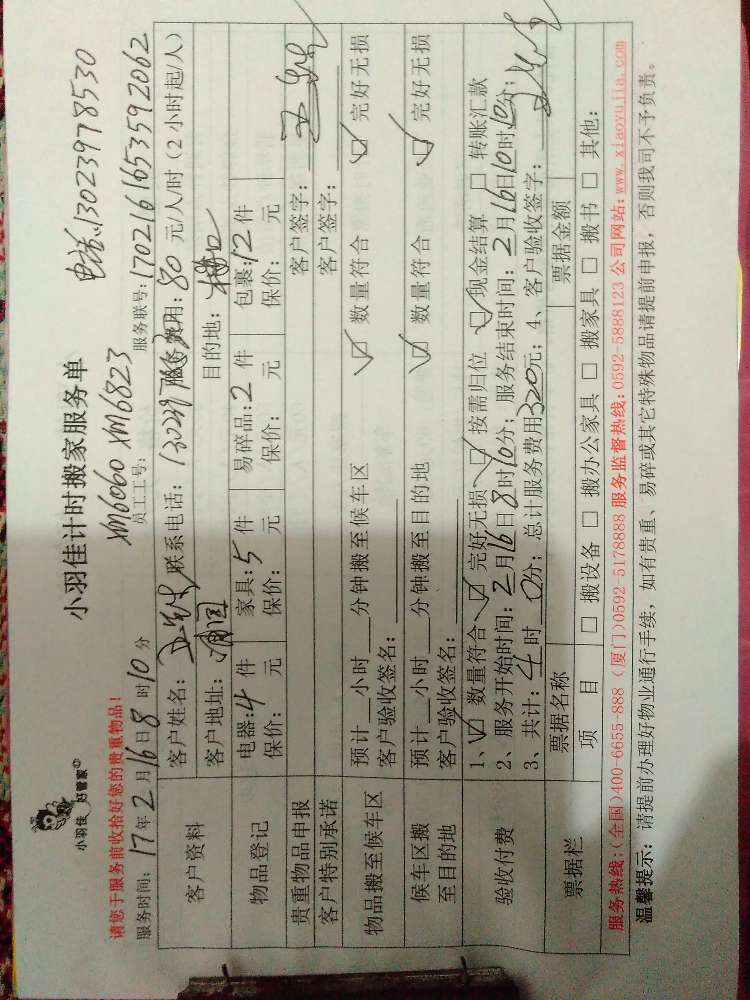 小羽佳 好管家
小羽佳计时搬家服务单
电话:13023978530
请您于服务前收拾好您的贵重物品!
XM6060 XM6823
服务时间: 17年2月16日8时10分 员工工号: 服务联号:1702161653592062
客户资料
客户姓名: 联系电话: 服务费用:80元/人/时(2小时起/人)
客户地址: 目的地:
物品登记
电器:4件 家具:5件 易碎品:2件 包裹:12件
保价: 元 保价: 元 保价: 元 保价: 元
贵重物品申报 客户签字:
客户特别承诺 客户签字:
物品搬至候车区
预计__小时__分钟搬至候车区 ☑数量符合 ☑完好无损
客户验收签名:
候车区搬至目的地
预计__小时__分钟搬至目的地 ☑数量符合 ☑完好无损
客户验收签名:
验收付费
1、☑数量符合 ☑完好无损 ☑按需归位 ☑现金结算 □转账汇款
2、服务开始时间:2月16日8时10分; 服务结束时间:2月16日10时10分;
3、共计:4时0分; 总计服务费用320元; 4、客户验收签字:
票据栏
票据名称 票据金额
项 目 □搬设备 □搬办公家具 □搬家具 □搬书 □其他:
服务热线:(全国)400-6655-888 (厦门)0592-5178888 服务监督热线:0592-5888123 公司网站:www.xiaoyujia.com
温馨提示:请提前办理好物业通行手续,如有贵重、易碎或其它特殊物品请提前申报,否则我司不予负责。